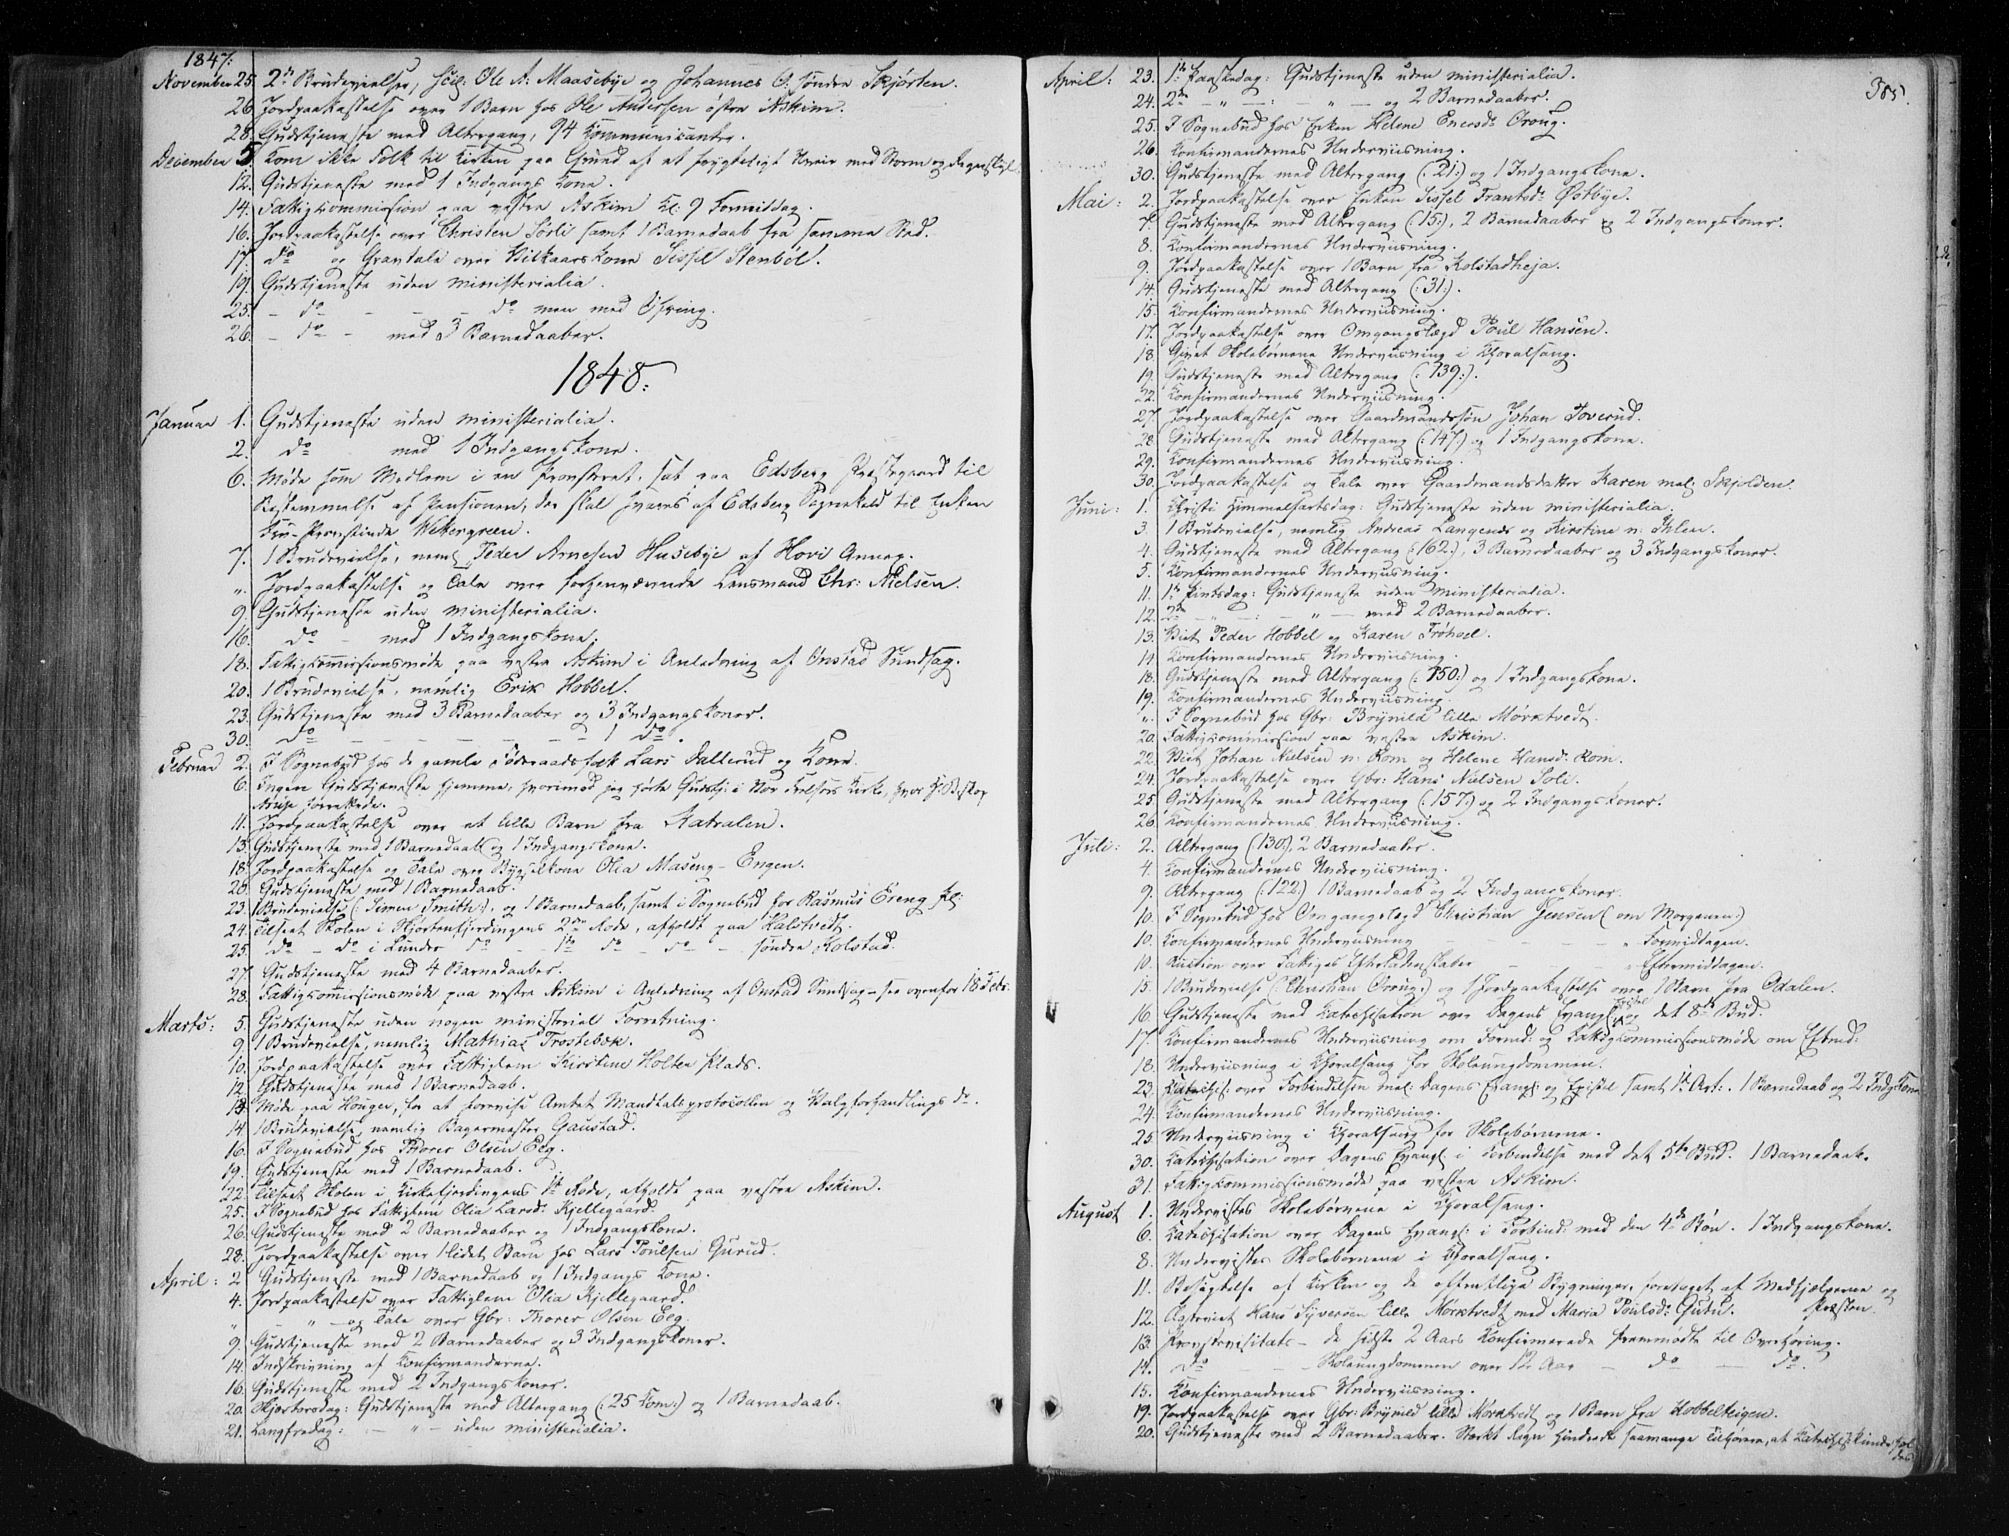 1847.
November 25. 2de Brudevielser, scil: Ole A: Maaseby og Johannes O. søndre Skjørten.
26. Jordpaakastelse over 1 Barn hos Ole Andersen østre Askim.
28. Gudstjeneste med Altergang, 94 Kommunicanter.
December 5. Kom ikke Folk til Kirken paa Grund af et frygteligt Uveir med Storm og Regnskyl.
12. Gudstjeneste med 1 Indgangs Kone.
14. Fattigkommission paa vestre Askim Kl: 9 Formiddag.
16. Jordpaakastelse over Christen Sørli samt 1 Barnedaab fra samme Sted.
17. do og Gravtale over Vilkaarskone Sissel Stenbøl.
19. Gudstjeneste uden ministerialia.
25. – do – – – do men med Ofring.
26. – do – med 3 Barnedaaber.
1848.
Januar 1. Gudstjeneste uden ministerialia.
2. do med 1 Indgangskone.
6. Møde som Medlem i en Provsteret, sat paa Edsberg Præstegaard til
Bestemmelse af Pensionen, der skal svares af Edsberg Sognekald til Enken
Fru Provstinde Wetergreen.
7. 1 Brudevielse, neml. Peder Arnesen Husebye af Hovi Annex.
" Jordpaakastelse og Tale over forhenværende Lensmand Chr: Nielsen.
9. Gudstjeneste uden ministerialia.
16. do – med 1 Indgangskone.
18. Fattigkommissionsmøde paa vestre Askim i Anledning af Onstad Sundsag.
20. 1 Brudevielse, nemlig Erik Hobbel.
23. Gudstjeneste med 3 Barnedaaber og 3 Indgangskoner.
30. do – – – – – 1 do.
Februar 2. I Sognebud hos de gamle Føderaadsfolk Lars Dallerud og Kone.
6. Ingen Gudstjeneste hjemme, hvorimod jeg hørte Gudstj: i Vor Frelsers Kirke, hvor H: Biskop
Arup forrettede.
11. Jordpaakastelse over et lille Barn fra Katralen.
13. Gudstjeneste med 1 Barnedaab og 1 Indgangskone.
18. Jordpaakastelse og Tale over Bygselkone Olia Maseng-Engen.
20. Gudstjeneste med 1 Barnedaab.
23. 1 Brudevielse (: Simen Smith:), og 1 Barnedaab, samt i Sognebud for Rasmus Ereng
24. Tilseet Skolen i Skjørtenfjerdingens 2den Rode, afholdt paa Kalstvedt.
25. do – do i Lunder do – 1ste do – do – søndre Kolstad.
27. Gudstjeneste med 4 Barnedaaber.
28. Fattigkommissionsmøde paa vestre Askim i Anledning af Onstad Sundsag – see ovenfor 18 Febr.
Marts: 5. Gudstjeneste uden nogen ministeriel Forretning.
9. 1 Brudevielse, nemlig Mathias Trostebøk.
10. Jordpaakastelse over Fattiglem Kirstine Holter Plads.
12. Gudstjeneste med 1 Barnedaab.
13. Møde paa Houger, for at forevise Amtet Mandtalsprotocollen og Valgforhandlings do.
14. 1 Brudevielse, nemlig Bagermester Gaustad.
16. I Sognebud hos Thorer Olsen Eeg.
19. Gudstjeneste med 1 Barnedaab.
22. Tilseet Skolen i Kirkefjerdingens 1te Rode, afholdt paa vestre Askim.
25. I Sognebud hos Fattiglem Olia Larsd: Kjellegaard.
26. Gudstjeneste med 2 Barnedaaber og 1 Indgangskone.
28. Jordpaakastelse over 1 lidet Barn hos Lars Poulsen Gurud.
April: 2. Gudstjeneste med 1 Barnedaab og 1 Indgangs Kone.
4. Jordpaakastelse over Fattiglem Olia Kjellegaard.
" – " – og Tale over Gbr: Thorer Olsen Eeg.
9. Gudstjeneste med 2 Barnedaaber og 3 Indgangskoner.
14. Indskrivning af Konfirmanderne.
16. Gudstjeneste med 2 Indgangskoner.
20. Skjærtorsdag: Gudstjeneste med Altergang (: 25 Com:) og 1 Barnedaab.
21. Langfredag: – " – uden ministerialia.
385.
April: 23. 1ste Paaskedag: Gudstjeneste uden ministerialia.
24. 2den – " – : – " – og 2 Barnedaaber.
25. I Sognebud hos Enken Helene Eneasd: Oroug.
26. Konfirmandernes Underviisning.
30. Gudstjeneste med Altergang (: 21:) og 1 Indgangskone.
Mai: 2. Jordpaakastelse over Enken Sissel Frantsd: Østbye.
7. Gudstjeneste med Altergang (: 15:), 2 Barnedaaber og 2 Indgangskoner.
8. Konfirmandernes Underviisning.
9. Jordpaakastelse over 1 Barn fra Kolstadheja.
14. Gudstjeneste med Altergang (: 31:).
15. Konfirmandernes Underviisning.
17. Jordpaakastelse over Omgangslægd Poul Hansen.
18. Givet Skolebørnene Underviisning i Choralsang.
19. Gudstjeneste med Altergang (: 139:).
22. Konfirmandernes Underviisning.
27. Jordpaakastelse over Gaardmandssøn Johan Toverud.
28. Gudstjeneste med Altergang (: 147:) og 1 Indgangskone.
29. Konfirmandernes Underviisning.
30. Jordpaakastelse og Tale over Gaardmandsdatter Karen mel: Skjolden.
Juni: 1. Christi Himmelfartsdag: Gudstjeneste uden ministerialia.
3. 1 Brudevielse, nemlig Andreas Langenæs og Kirstine n: Ihlen.
4. Gudstjeneste med Altergang (: 162:), 3 Barnedaaber og 3 Indgangskoner.
5. Konfirmandernes Underviisning.
11. 1te Pintsdag: Gudstjeneste uden ministerialia.
12. 2den – " – : – " – med 2 Barnedaaber.
13. Viet Peder Hobbel og Karen Frøhael.
14. Konfirmandernes Underviisning.
18. Gudstjeneste med Altergang (: 150:) og 1 Indgangskone.
19. Konfirmandernes Underviisning.
". I Sognebud hos Gbr: Brynild lille Mørktvedt.
20. Fattigkommission paa vestre Askim.
22. Viet Johan Nielsen n: Rom og Helene Hansd: Rom.
24. Jordpaakastelse over Gbr: Hans Nielsen Soli.
25. Gudstjeneste med Altergang (: 157:) og 2 Indgangskoner.
26. Konfirmandernes Underviisning.
Juli: 2. Altergang (: 130:), 2 Barnedaaber.
4. Konfirmandernes Underviisning.
9. Altergang (: 122:) 1 Barnedaab og 2 Indgangskoner.
10. I Sognebud hos Omgangslægd Christian Jensen (: om Morgenen:)
10. Konfirmandernes Underviisning – – – " Formiddagen.
10. Auction over Fattiges Efterladenskaber – – " Eftermiddagen.
15. 1 Brudevielse (: Christian Oroug:) og 1 Jordpaakastelse over 1 Barn fra Odalen.
16. Gudstjeneste med Katechisation over Dagens Evangl: Epistel og det 8de Bud.
17. Konfirmandernes Underviisning om Formd: og Fattigkommissionsmøde om Eftmd:
18. Underviisning i Choralsang for Skoleungdommen.
23. Katechis: over Forbindelsen mel: Dagens Evangl: og Epistel samt 1te Art:. 1 Barnedaab og 2 Indg:Kone
24. Konfirmandernes Underviisning.
25. Underviisning i Choralsang for Skolebørnene.
30. Katechisation over Dagens Evangl: i Forbindelse med det 5te Bud. 1 Barnedaab.
31. Fattigkommissionsmøde paa vestre Askim.
August 1. Undervistes Skolebørnene i Choralsang.
6. Katechisation over Dagens Evangl: i Forbind: med den 4de Bøn. 1 Indgangskone.
8. Undervistes Skolebørnene i Choralsang.
11. Besigtelse af Kirken og de offentlige Bygninger, foretaget af Medhjælperne og
Præsten.
12. Copuleret Hans Syversen lille Mørktvedt med Maria Poulsd: Gutu.
13. Provstevisitats – de sidste 2 Aars Konfirmerede fremmødte til Overhøring.
14. do – Skoleungdommen over 12 Aar – do – do.
15. Konfirmandernes Underviisning.
19. Jordpaakastelse over Gbr: Brynild lille Mørktvedt og 1 Barn fra Hobbelteigen.
20. Gudstjeneste med 2 Barnedaaber. Stærkt Regn hindrede saamange Tilhørere, at Katechis: kunde hol-
des